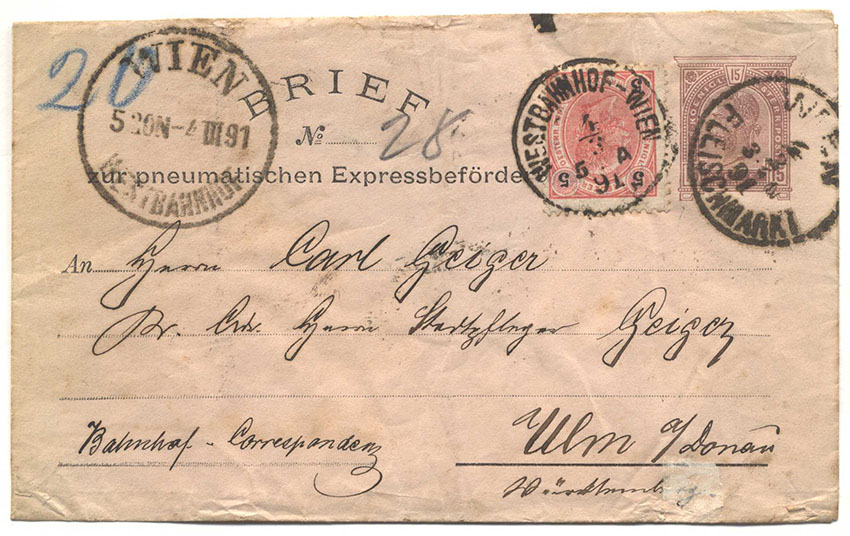 20
WIEN
5 20N-4 III 91
WESTBAHNHOF
BRIEF
No 28
zur pneumatischen Expressbeförde
WESTBAHNHOF-WIEN
4 3
5 A
91
5 5
15
15
WIEN
FLEISCHMARKT
91
An Herrn Carl Geiger
pr. Adr. Herrn Stadtpfleger Geiger
Bahnhof-Correspondenz
Ulm a/Donau
Württemberg